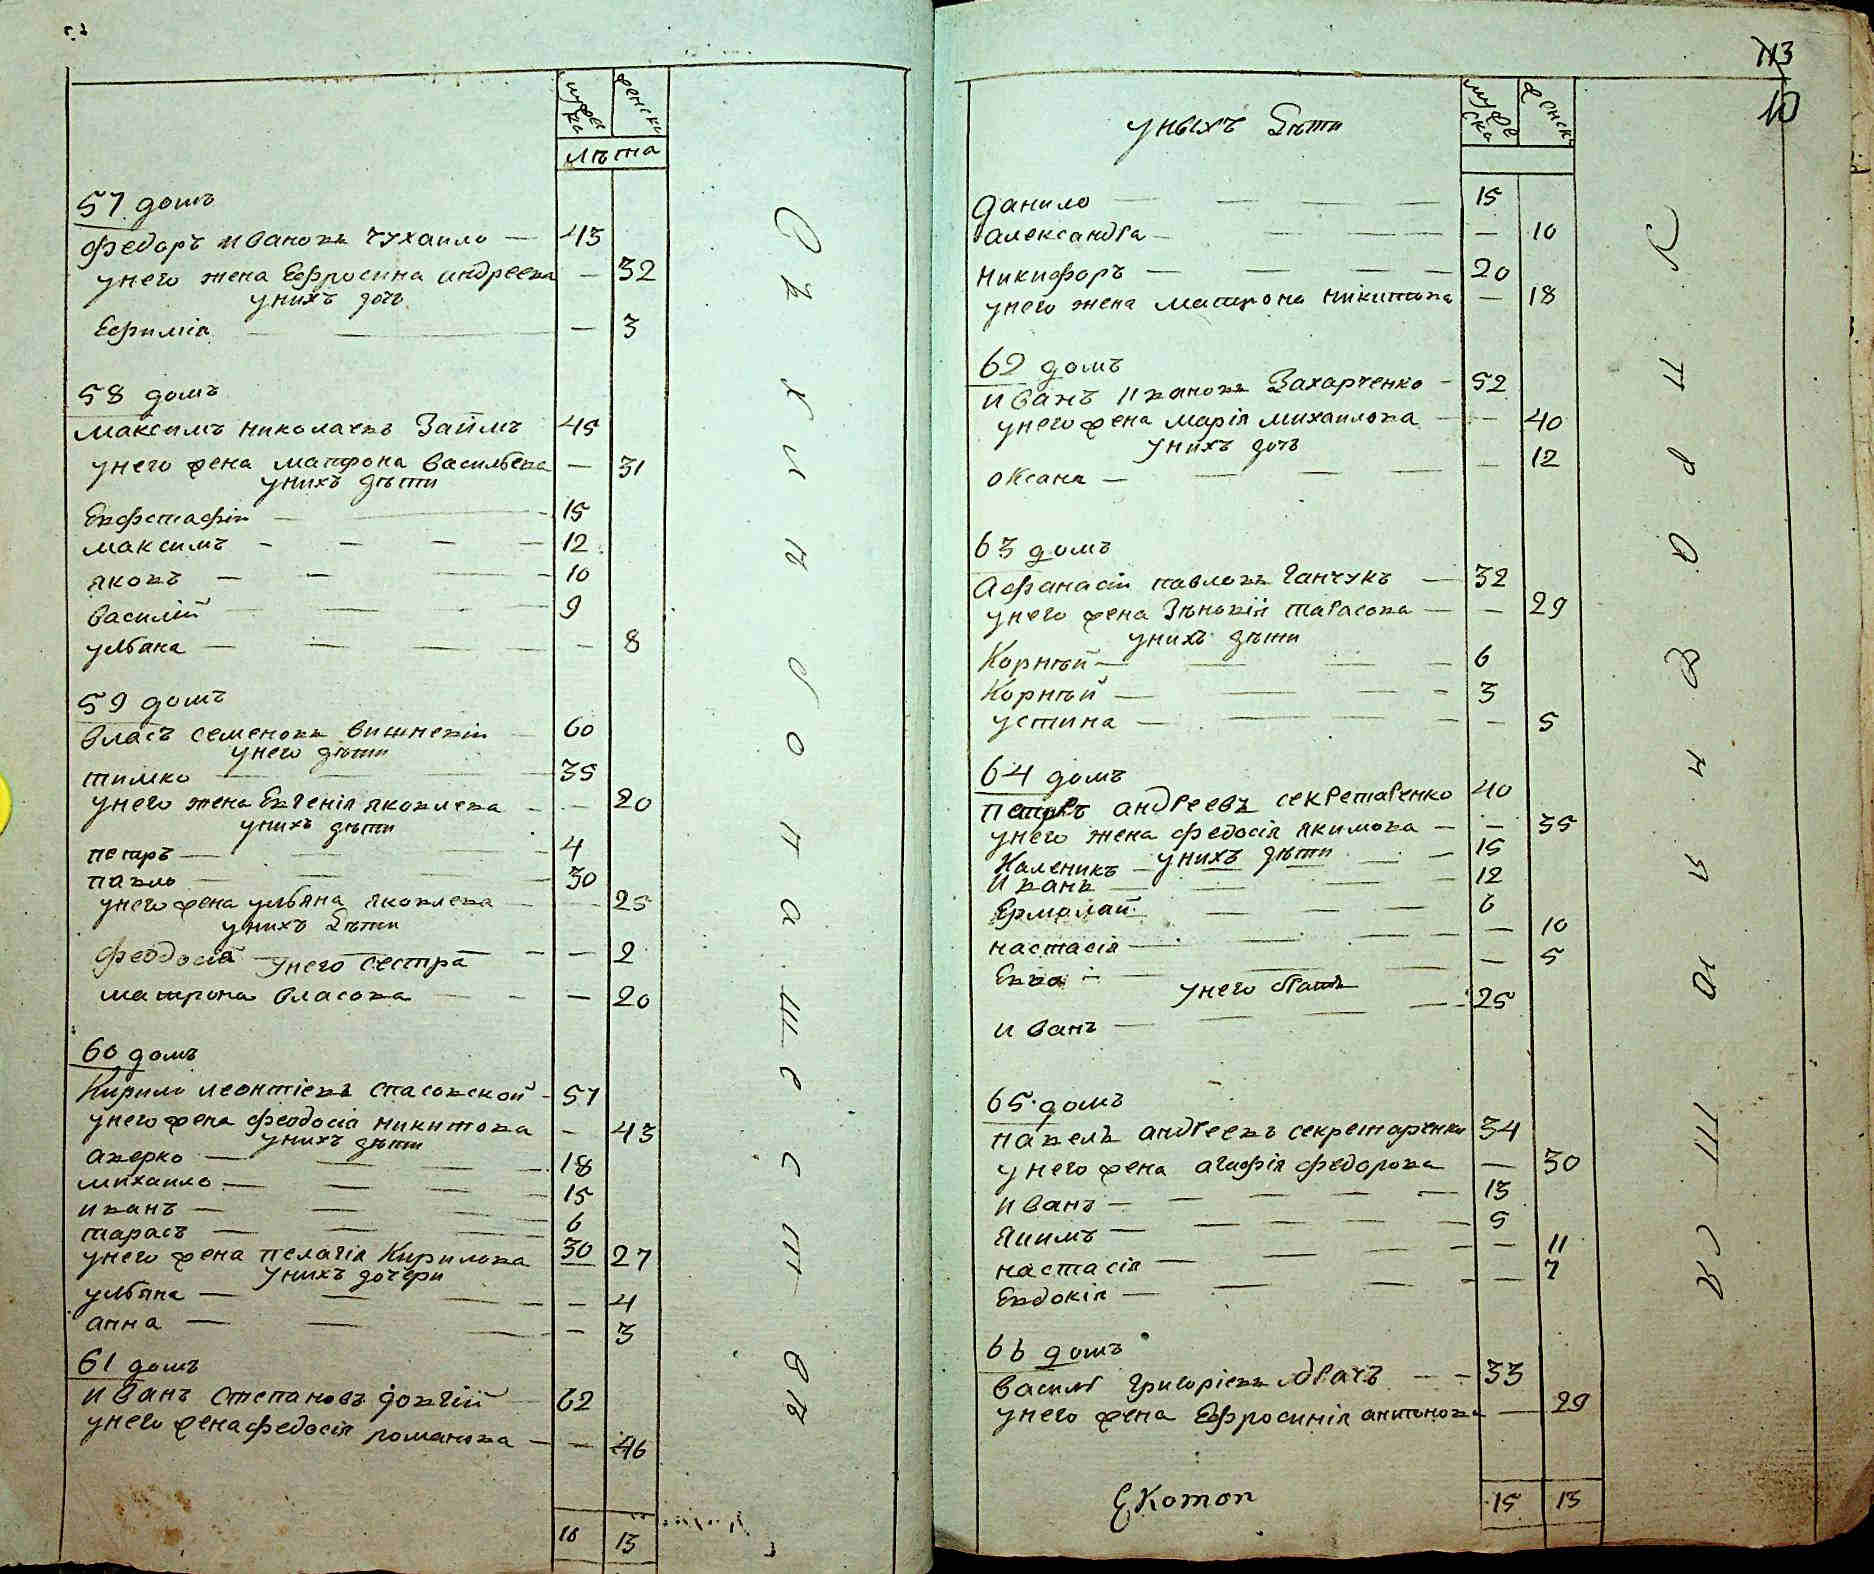 мужеска женски
лѣта
57 домъ
Федоръ Ивановъ Чухаило — 43
унего жена Ефросина андреева — 32
унихъ дочь
Ефимія — 3
58 домъ
Максимъ Николаевъ Заимъ 45
унего жена матрона васильева — 31
унихъ дѣти
Евфстафiи — 15
максимъ — 12
яковъ — 10
василiй — 9
ульяна — 8
59 домъ
Власъ семеновъ вишневскiи — 60
унего дѣти
тимко — 35
унего жена Евгенія яковлева — 20
унихъ дѣти
петръ — 4
павло — 30
унего жена ульяна яковлева — 25
унихъ дѣти
феодосiа — 2
унего сестра
матрона власова — 20
60 домъ
Кирило леонтiевъ спасовской — 57
унего жена феодосiа никитова — 43
унихъ дѣти
аверко — 18
михаило — 15
иванъ — 6
тарасъ — 30
унего жена пелагiя Кирилова 27
унихъ дочери
ульяна — 4
анна — 3
61 домъ
иванъ степановъ довгiй — 62
унего жена федосiя романова — 46
18 13
113
10
уныхъ дѣти
мужеска женски
данило — 15
александра — 10
никифоръ — 20
унего жена матрона никитова — 18
62 домъ
иванъ ивановъ Захарченко — 52
унего жена марiя михаилова — 40
унихъ дочь
оксана — 12
63 домъ
Афанасiи павловъ Ганчукъ — 32
унего жена Зѣновiя тарасова — 29
унихъ дѣти
Корнѣй — 6
Корнѣй — 3
устина — 5
64 домъ
петръ андреевъ секретаренко 40
унего жена федосiя якимова — 35
унихъ дѣти
Каленикъ — 15
иванъ — 12
Ермолай — 6
настасiя — 10
Евва — 5
унего братъ
иванъ — 25
65 домъ
павелъ андреевъ секретаренко 34
унего жена агафiя федорова — 30
иванъ — 13
якимъ — 5
настасiя — 11
Евдокiя — 7
66 домъ
василь григорiевъ — 33
унего жена Ефросинiя антонова — 29
Економ
15 13